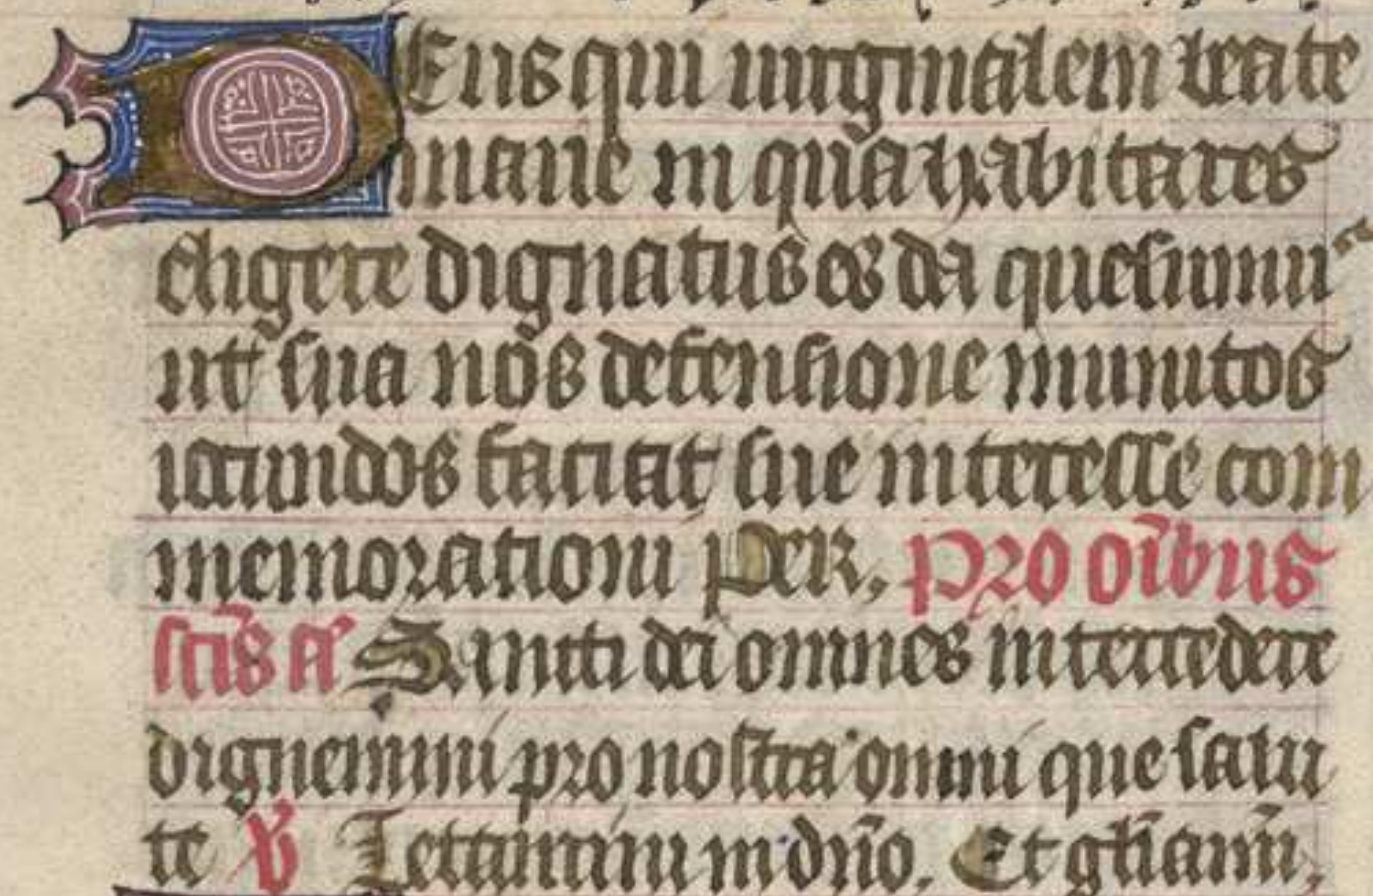 DEus qui uirginalem beate
marie in qua habitares
eligere dignatus es da quesumus
ut sua nos defensione munitos
iocundos faciat sue interesse com
memorationi Per. Pro oib̄us
sc̄is a͞ Sancti dei omnes intercedere
dignemini pro nostra omni que salu
te V̄ Letamini in dn̄o. Et gl̄iamī.